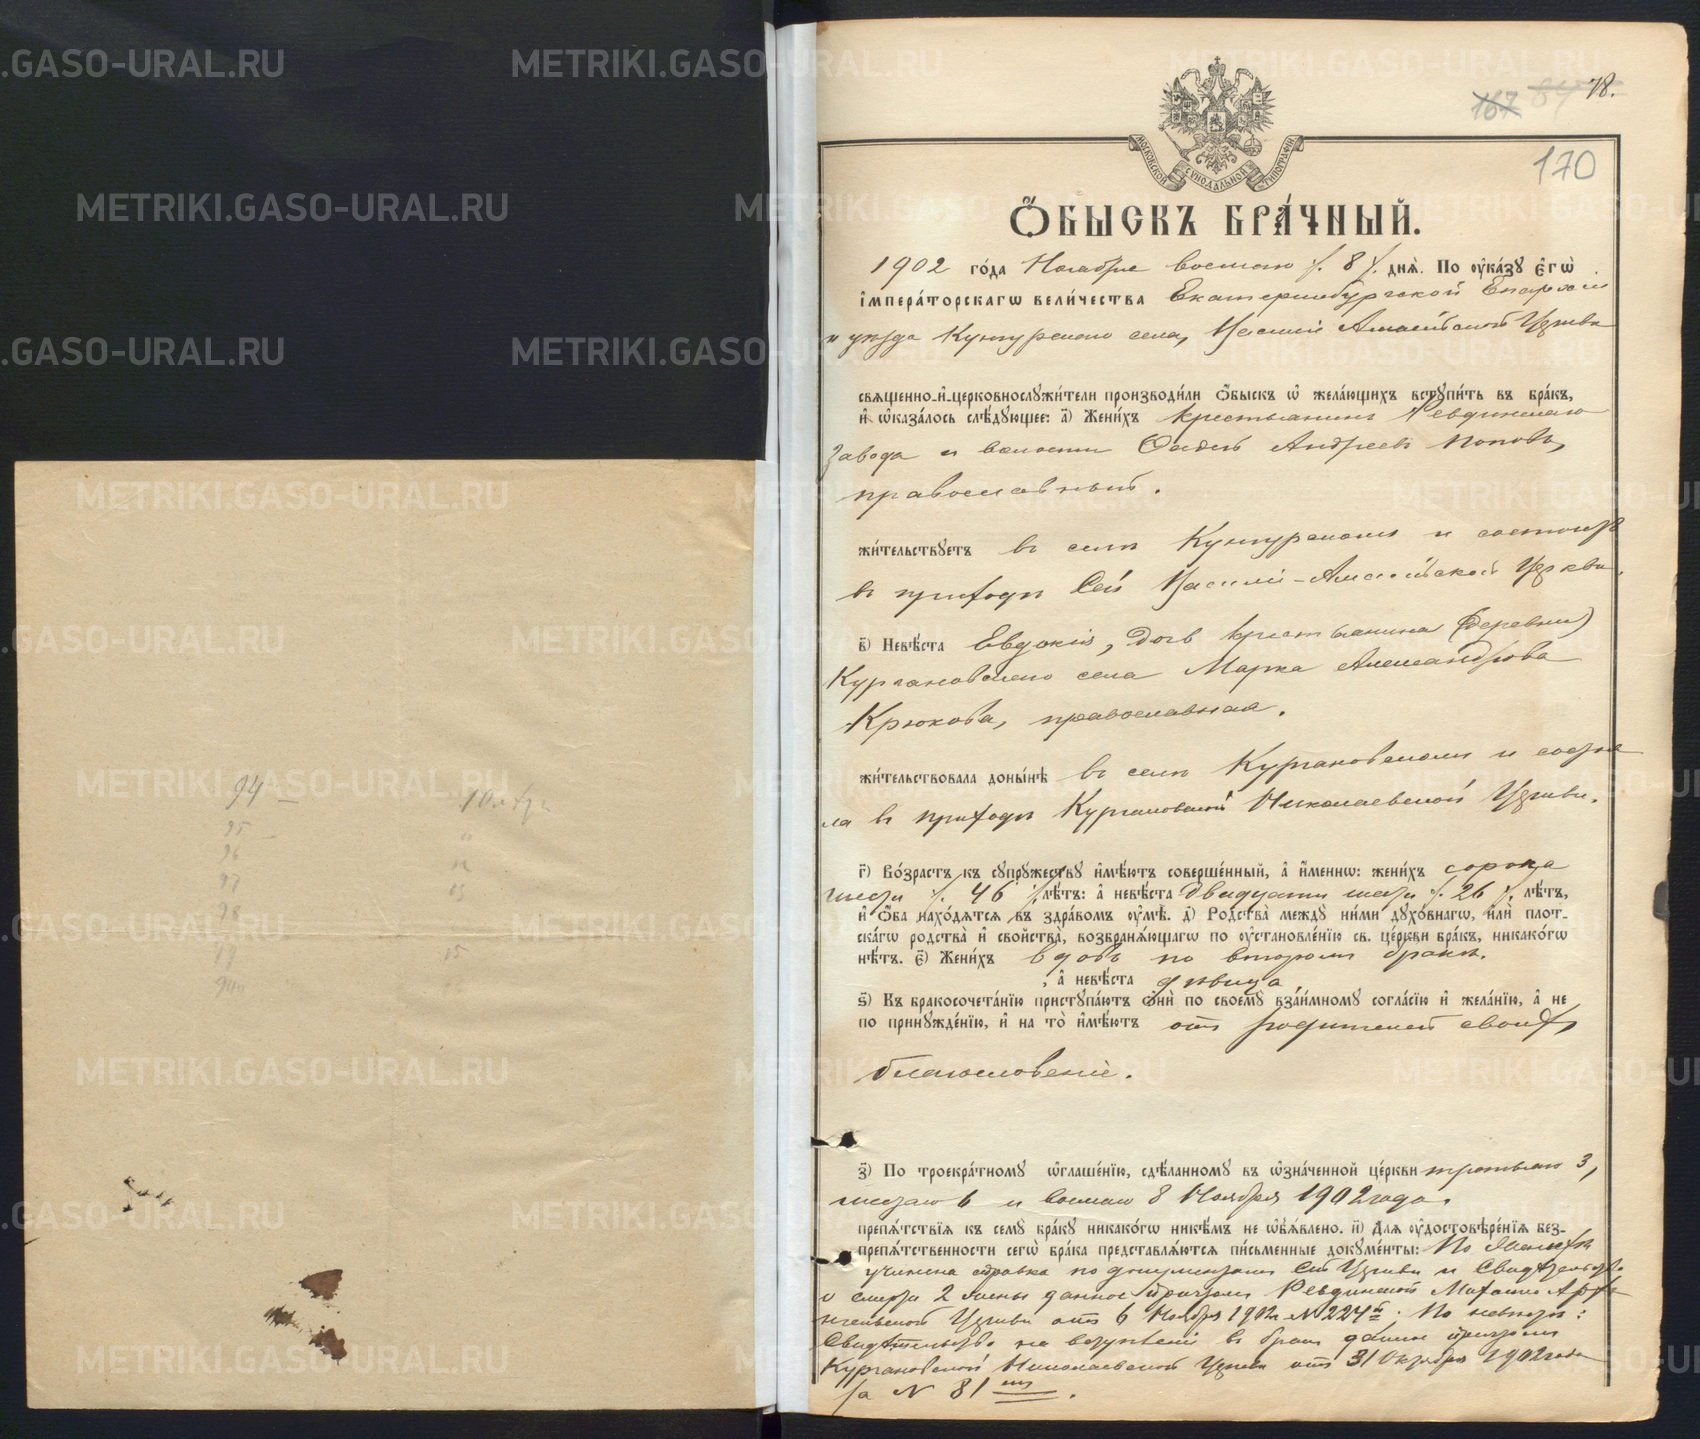 78.
167 84
170
МОСКОВСКОЙ СѴНОДАЛЬНОЙ ТИПОГРАФІИ
Ѻ҆БЫСКЪ БРА́ЧНЫЙ.
1902 го́да Ноября восьмаго /. 8 /. днѧ̀. По ᲂу҆ка́зꙋ є҆гѡ̀
і҆мпера́торскагѡ вели́чества Екатеринбургской Епархіи
и уѣзда Кунгурскаго села, Василіе Амасійской Церкви
свѧщенно-и҆-церковнослꙋжи́тели производи́ли ѻ҆́быскъ ѡ҆ жела́ющихъ встꙋпи́ть въ бра́къ,
и҆ ѡ҆каза́лось слѣ́дꙋющее: а҃) Жени́хъ крестьянинъ Ревдинскаго
завода и волости Андреевъ Поповъ,
православный.
жи́тельствꙋетъ въ селѣ Кунгурскомъ и состоитъ
въ приходѣ сей Василіе-Амасійской Церкви.
в҃) Невѣ́ста Евдокія, дочь крестьянина (деревни)
Кургановскаго села Марка Александрова
Крюкова, православная.
жи́тельствовала доны́нѣ въ селѣ Кургановскомъ и состоя
ла въ приходѣ Кургановской Николаевской Церкви.
г҃) Во́зрастъ къ сꙋпрꙋ́жествꙋ и҆мѣ́ютъ соверше́нный, а҆ и҆́меннѡ: жени́хъ сорока
шести /. 46 /. лѣ́тъ: а҆ невѣ́ста двадцати шести /. 26 /. лѣ́тъ,
и҆ ѻ҆́ба нахо́дѧтсѧ въ здра́вомъ ᲂу҆мѣ̀. д҃) Ро́дства междꙋ̀ ни́ми дꙋхо́внагѡ, и҆лѝ плот-
ска́гѡ родства̀ и҆ сво́йства, возбранѧ́ющагѡ по ᲂу҆становле́нїю св. це́ркви бра́къ, никако́гѡ
нѣ́тъ. є҃) Жени́хъ вдовъ по второмъ бракѣ,
, а҆ невѣ́ста дѣвица,
ѕ҃) Къ бракосочета́нїю пристꙋпа́ютъ ѻ҆нѝ по своемꙋ̀ взаи́мномꙋ согла́сїю и҆ жела́нїю, а҆ не
по принꙋжде́нїю, и҆ на то̀ и҆мѣ́ютъ отъ родителей своихъ
благословеніе.
з҃) По троекра́тномꙋ ѡ҆глаше́нїю, сдѣ́ланномꙋ въ ѡ҆зна́ченной це́ркви третьяго 3,
шестаго 6 и восьмаго 8 Ноября 1902 года.
препѧ́тствїѧ къ семꙋ̀ бра́кꙋ никако́гѡ никѣ́мъ не ѡ҆б̾ѧ́влено. и҃) Длѧ ᲂу҆достовѣре́нїѧ без-
препѧ́тственности сегѡ̀ бра́ка представлѧ́ютсѧ пи́сьменные докꙋме́нты: По женихѣ
учинена справка по документамъ сей Церкви и Свидѣтельство
о смерти 2 жены данное причтомъ Ревдинской Михаило Арха
нгельской Церкви отъ 6 Ноября 1902 г. № 224й. По невѣстѣ:
Свидѣтельство на вступленіе въ бракъ данное причтомъ
Кургановской Николаевской Церкви отъ 31 Октября 1902 года
за № 81мъ.
94 – 10
95
96
97
98